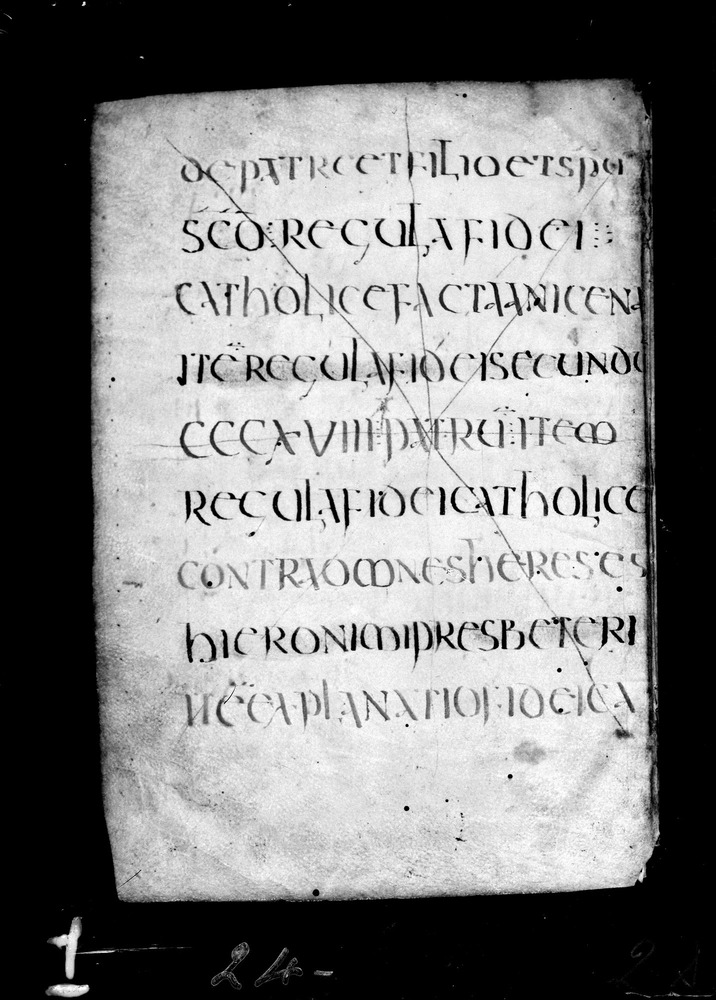 DEPATRE ET FILIO ET SPU
SCO: REGULA FIDEI :
CATHOLICE FACTA A NICENA
ITE REGULA FIDEI SECUNDU
CCCXVIII PATRU ITEM
REGULA FIDEI CATHOLICE
CONTRA OMNES HERESES
HIERONIMI PRESBETERI
ITE EXPLANATIO FIDEI CA
24-